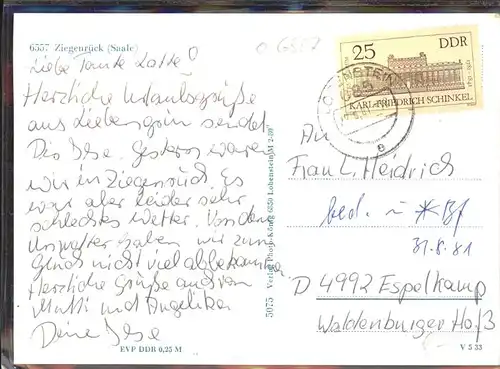 6557 Ziegenrück (Saale)
Liebe Tante Lotte!
Herzliche Urlaubsgrüße
aus Liebengrün sendet
Dir Ilse. Gestern waren
wir in Ziegenrück. Es
war aber leider sehr
schlechtes Wetter. Von dem
Unwetter haben wir zum
Glück nicht viel abbekommen.
Herzliche Grüße auch von
Mutti und Angelika
Deine Ilse
EVP DDR 0,25 M
5075 Verlag Photo-König 6850 Lobenstein M 2-80
O 6857
25 DDR
KARL-FRIEDRICH SCHINKEL
1781-1841
An
Frau L. Heidrich
bed. ✶ Bf
31.8.81
D 4992 Espelkamp
Waldenburger Hof 3
V 5 33